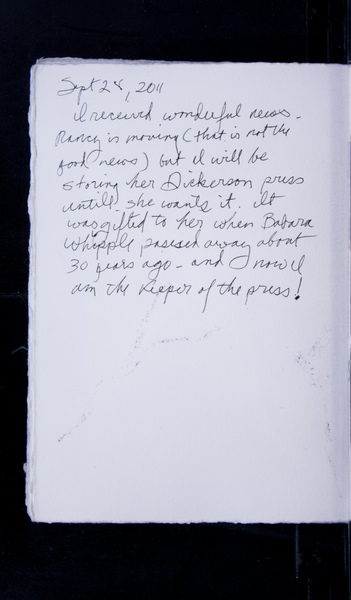 Sept 28, 2011
I received wonderful news -
Nancy is moving (that is not the
good news) but I will be
storing her Dickerson press
untill she wants it. It
was gifted to her when Babara
Whipple passed away about
30 years ago - and now I
am the Keeper of the press!